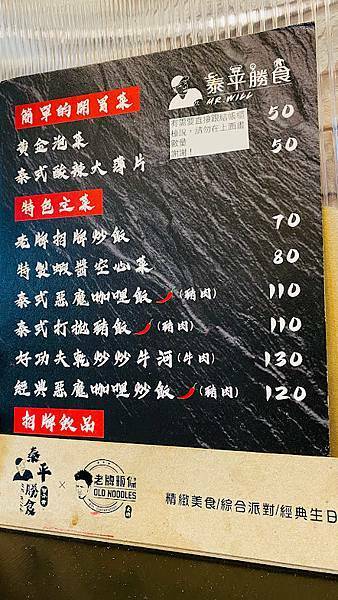 泰平勝食
MR.WILL
簡單的開胃菜
有需要直接跟結帳櫃
檯說，請勿在上面畫
數量
謝謝！
黃金泡菜 50
泰式酸辣大薄片 50
特色主菜
老牌招牌炒飯 70
特製蝦醬空心菜 80
泰式惡魔咖哩飯(豬肉) 110
泰式打拋豬飯(豬肉) 110
好功夫乾炒炒牛河(牛肉) 130
經典惡魔咖哩炒飯(豬肉) 120
招牌飲品
泰平勝食
×
老牌粄條
OLD NOODLES
精緻美食/綜合派對/經典生日